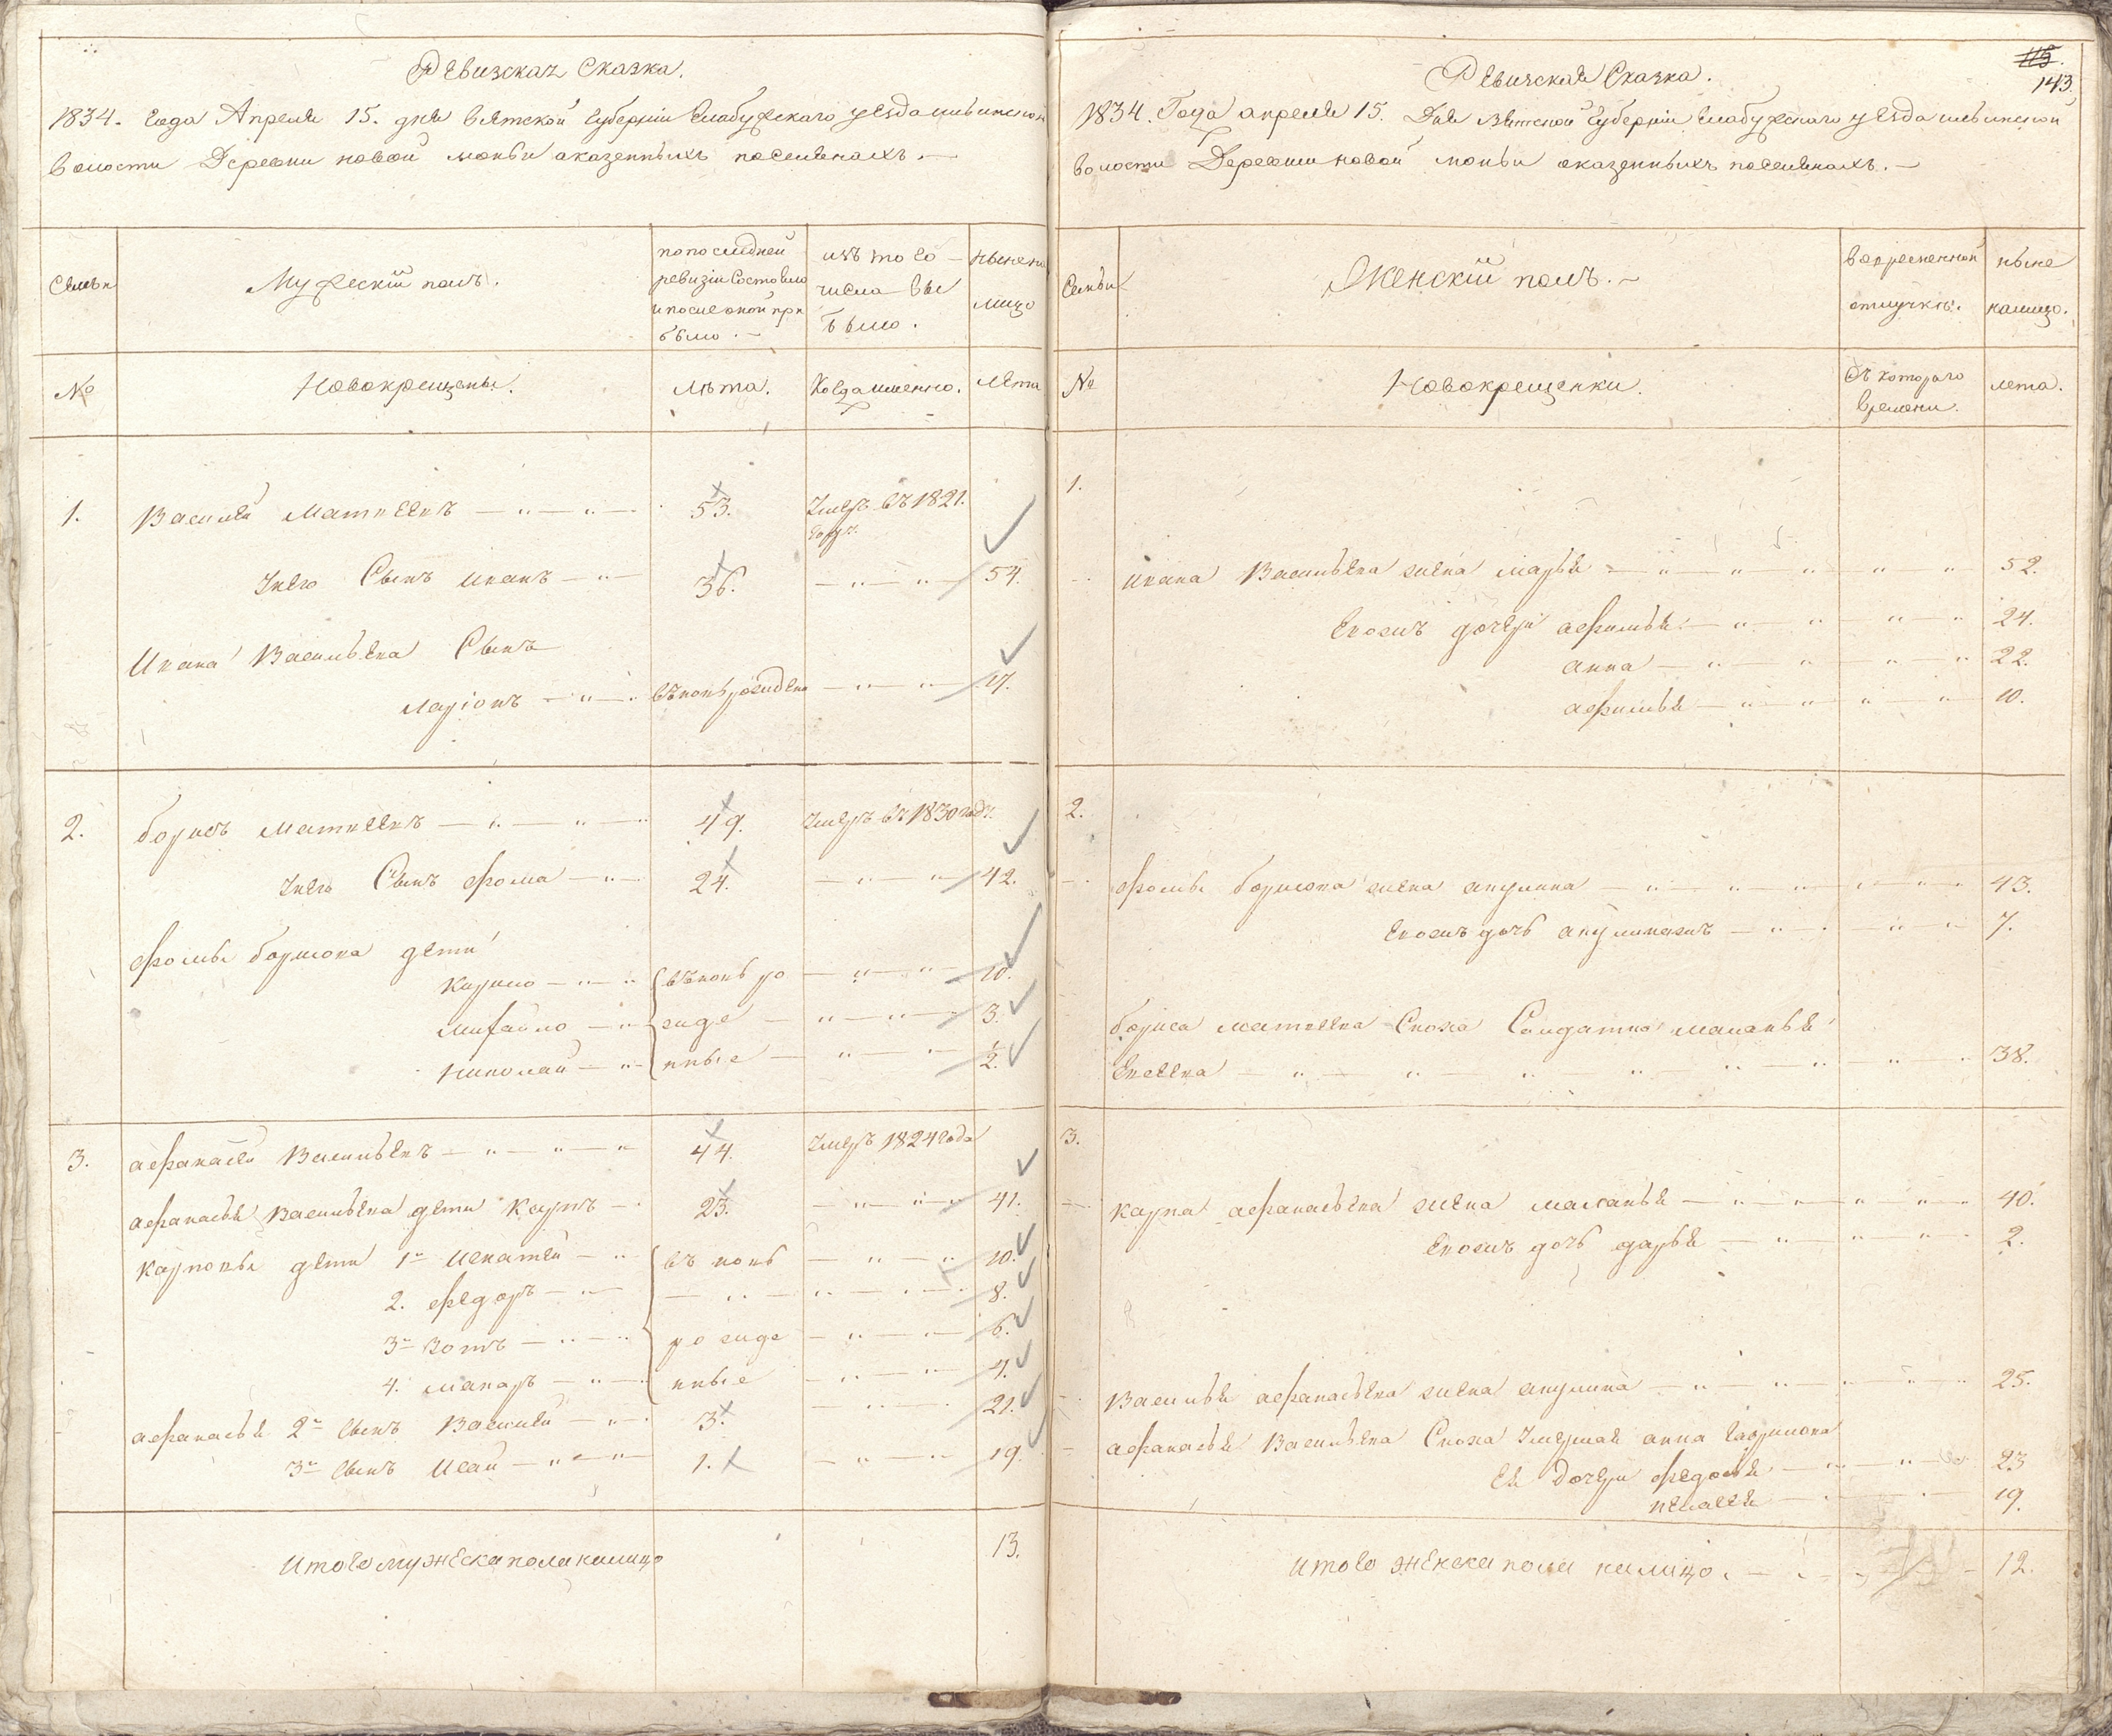 Ревизская Сказка.
1834. года Апреля 15. дня Вятской губернии Елабужскаго уезда
волости Деревни новой моньи оказенныхъ поселянахъ. —
Семьи
Мужескій полъ.
попоследней
ревизіи Состояло
и после оной при
было. —
изъ того —
числа вы
было.
ныне на
лицо
№
Новокрещены.
лѣта.
Когда именно.
Лета
1. Василей Матвеевъ 53. Умеръ въ 1821.
году.
Унего Сынъ иванъ 36. 54.
Ивана Васильева Сынъ
ларіонъ вновь рожденъ 17.
2. борисъ матвеевъ 49. Умеръ въ 1830 годъ.
Унего Сынъ фома 24. 42.
фомы борисова дети
Кирило вновь ро 10.
михайло жде 3.
николай нные 1/2.
3. афанасей Васильевъ 44. Умеръ 1824 года
афанасья Васильева дети Карпъ 23. 41.
Карповы дети 1й Игнатей въ новь 10.
2. федоръ 8.
3й Зотъ рожде 6.
4. макаръ нные 4.
афанасья 2й сынъ Василей 3. 21.
3й сынъ Исай 1. 19.
Итого мужеска пола налицо 13.
115.
143.
Ревизская Сказка.
1834. Года апреля 15. Дня Вятской Губерніи Елабужскаго уезда
волости Деревни новой моньи оказенныхъ поселянахъ. —
Семьи
Женскій полъ. —
вовременной
отлучкѣ.
ныне
налицо.
№
Новокрещенки.
Съ котораго
времени.
лета.
1.
ивана Васильева жена марья 52.
Евожъ дочери афимья 24.
анна 22.
афимья 10.
2.
фомы борисова жена акулина 43.
Евожъ дочь акулинажъ 7.
бориса матвеева Сноха Солдатка маланья
Евсеева 38.
3.
карпа афанасьева жена маланья 40.
Евожъ дочь дарья 2.
Василья афанасьева жена акулина 25.
афанасья Васильева Сноха Умершая анна гаврилова
Ея Дочери федосья 23
пелагея 19.
Итого женска пола налицо. 12.